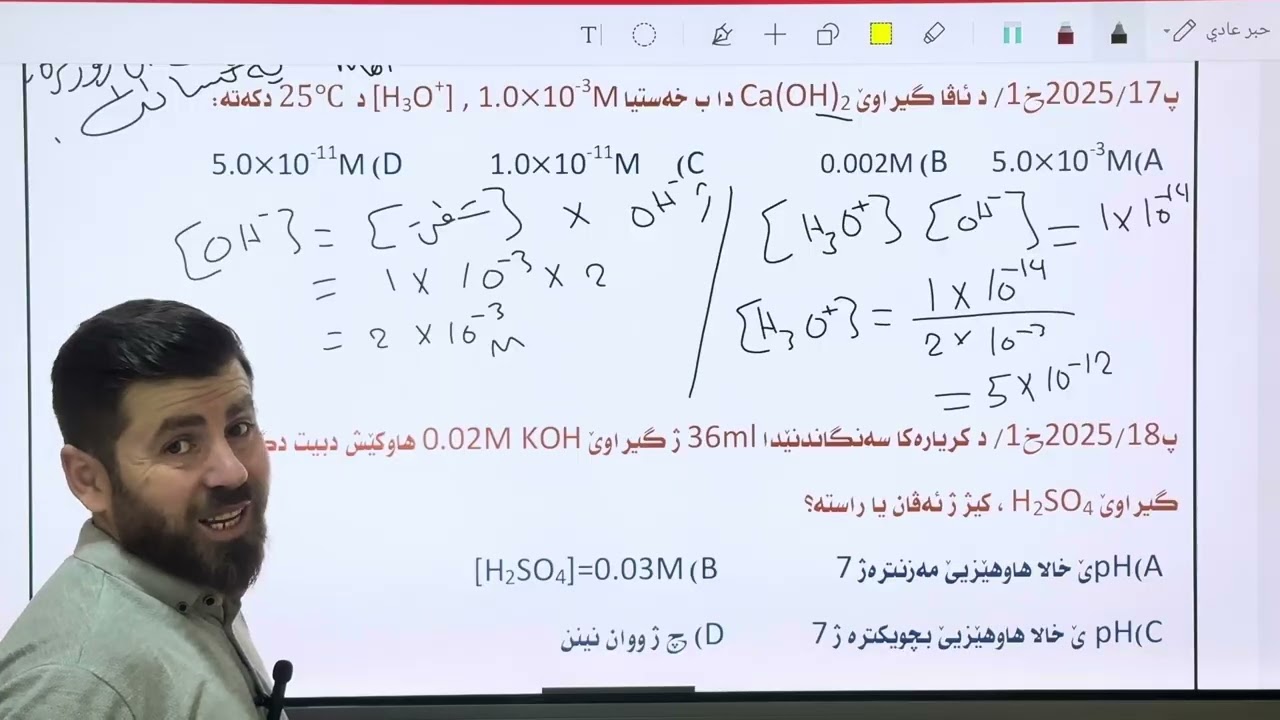 حبر عادي
پ2025/17خ1/ د ئاڤا گیراوێ Ca(OH)₂ دا ب خەستیا 1.0×10⁻³M , [H₃O⁺] د 25°C دکەتە:
5.0×10⁻³M(A 0.002M(B 1.0×10⁻¹¹M (C 5.0×10⁻¹¹M(D
[OH⁻] = [شفرت] × OH⁻
= 1 × 10⁻³ × 2
= 2 × 10⁻³ M
[H₃O⁺] [OH⁻] = 1×10⁻¹⁴
[H₃O⁺] = 1 × 10⁻¹⁴
2 × 10⁻³
= 5 × 10⁻¹²
پ2025/18خ1/ د کریارەکا سەنگاندنێدا 36ml ژ گیراوێ 0.02M KOH هاوکێش دبیت
گیراوێ H₂SO₄ ، کیژ ژ ئەڤان یا راستە؟
pH(Aێ خالا هاوهێزیێ مەزنترە ژ 7 [H₂SO₄]=0.03M(B
pH(C ێ خالا هاوهێزیێ بچویکترە ژ 7 D) چ ژ ووان نینن